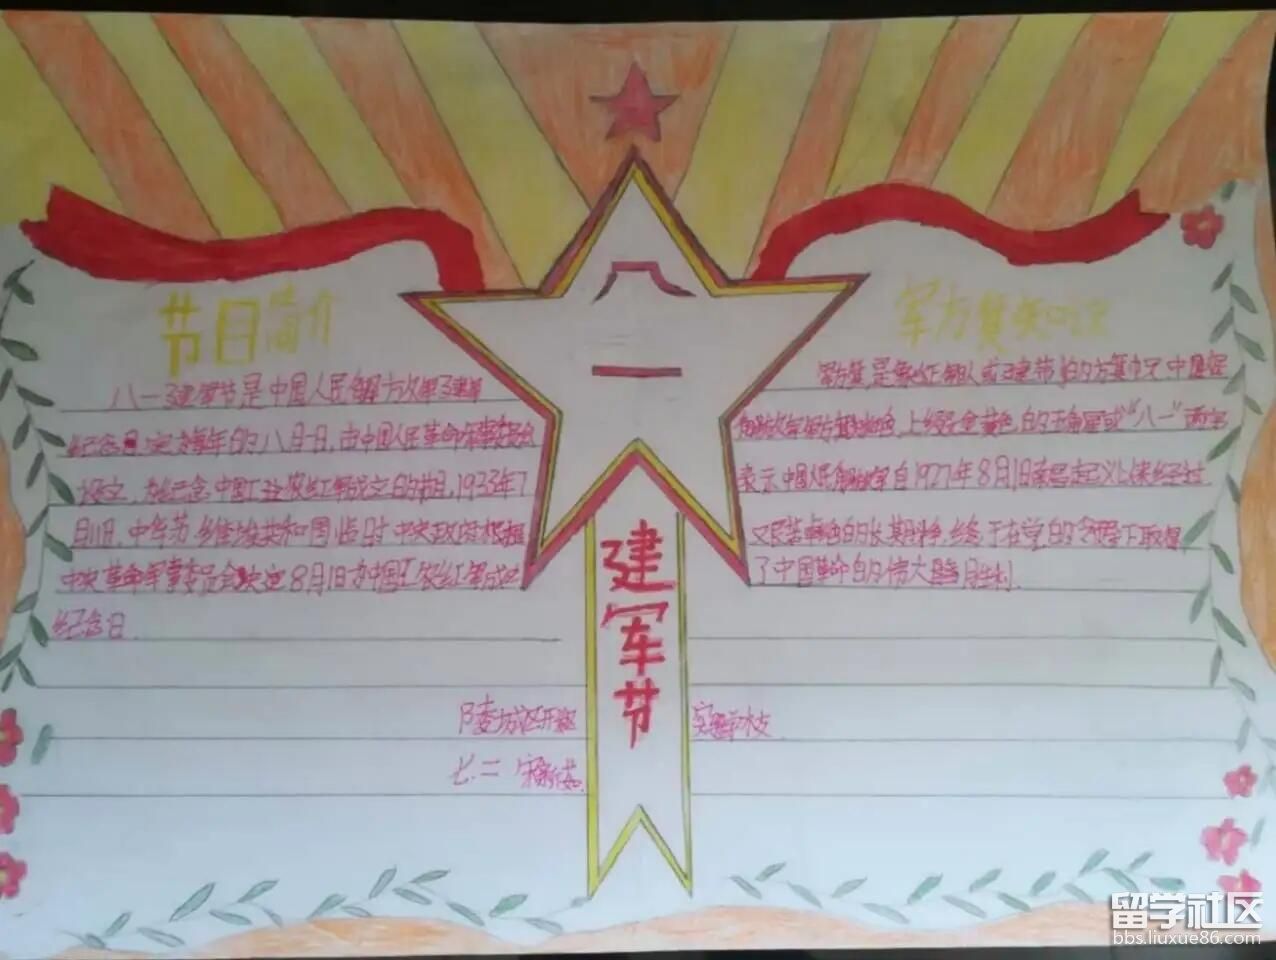 八
一
建军节
节目简介
八一建军节是中国人民解放军建军
纪念日,定为每年的八月一日,由中国人民革命军事委员会
设立,为纪念中国工农红军成立的节日,1933年7
月11日,中华苏维埃共和国临时中央政府根据
中央革命军事委员会
8月1日为中国工农红军成立
纪念日.
军方
是
中国
上缀金黄色的五角星或“八一”两字
表示中国人民解放军自1927年8月1日南昌起义
经过
长期斗争,终于在党的领导下取得
了中国革命的伟大
胜利.
陵城区开发区
实验学校
七.二
留学社区
bbs.liuxue86.com